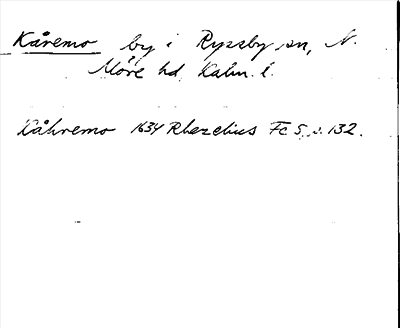 Kåremo by i Ryssby sn, N.
Möre hd Kalm. l.
Kåhremo 1634 Rhezelius Fc 5, s. 132.